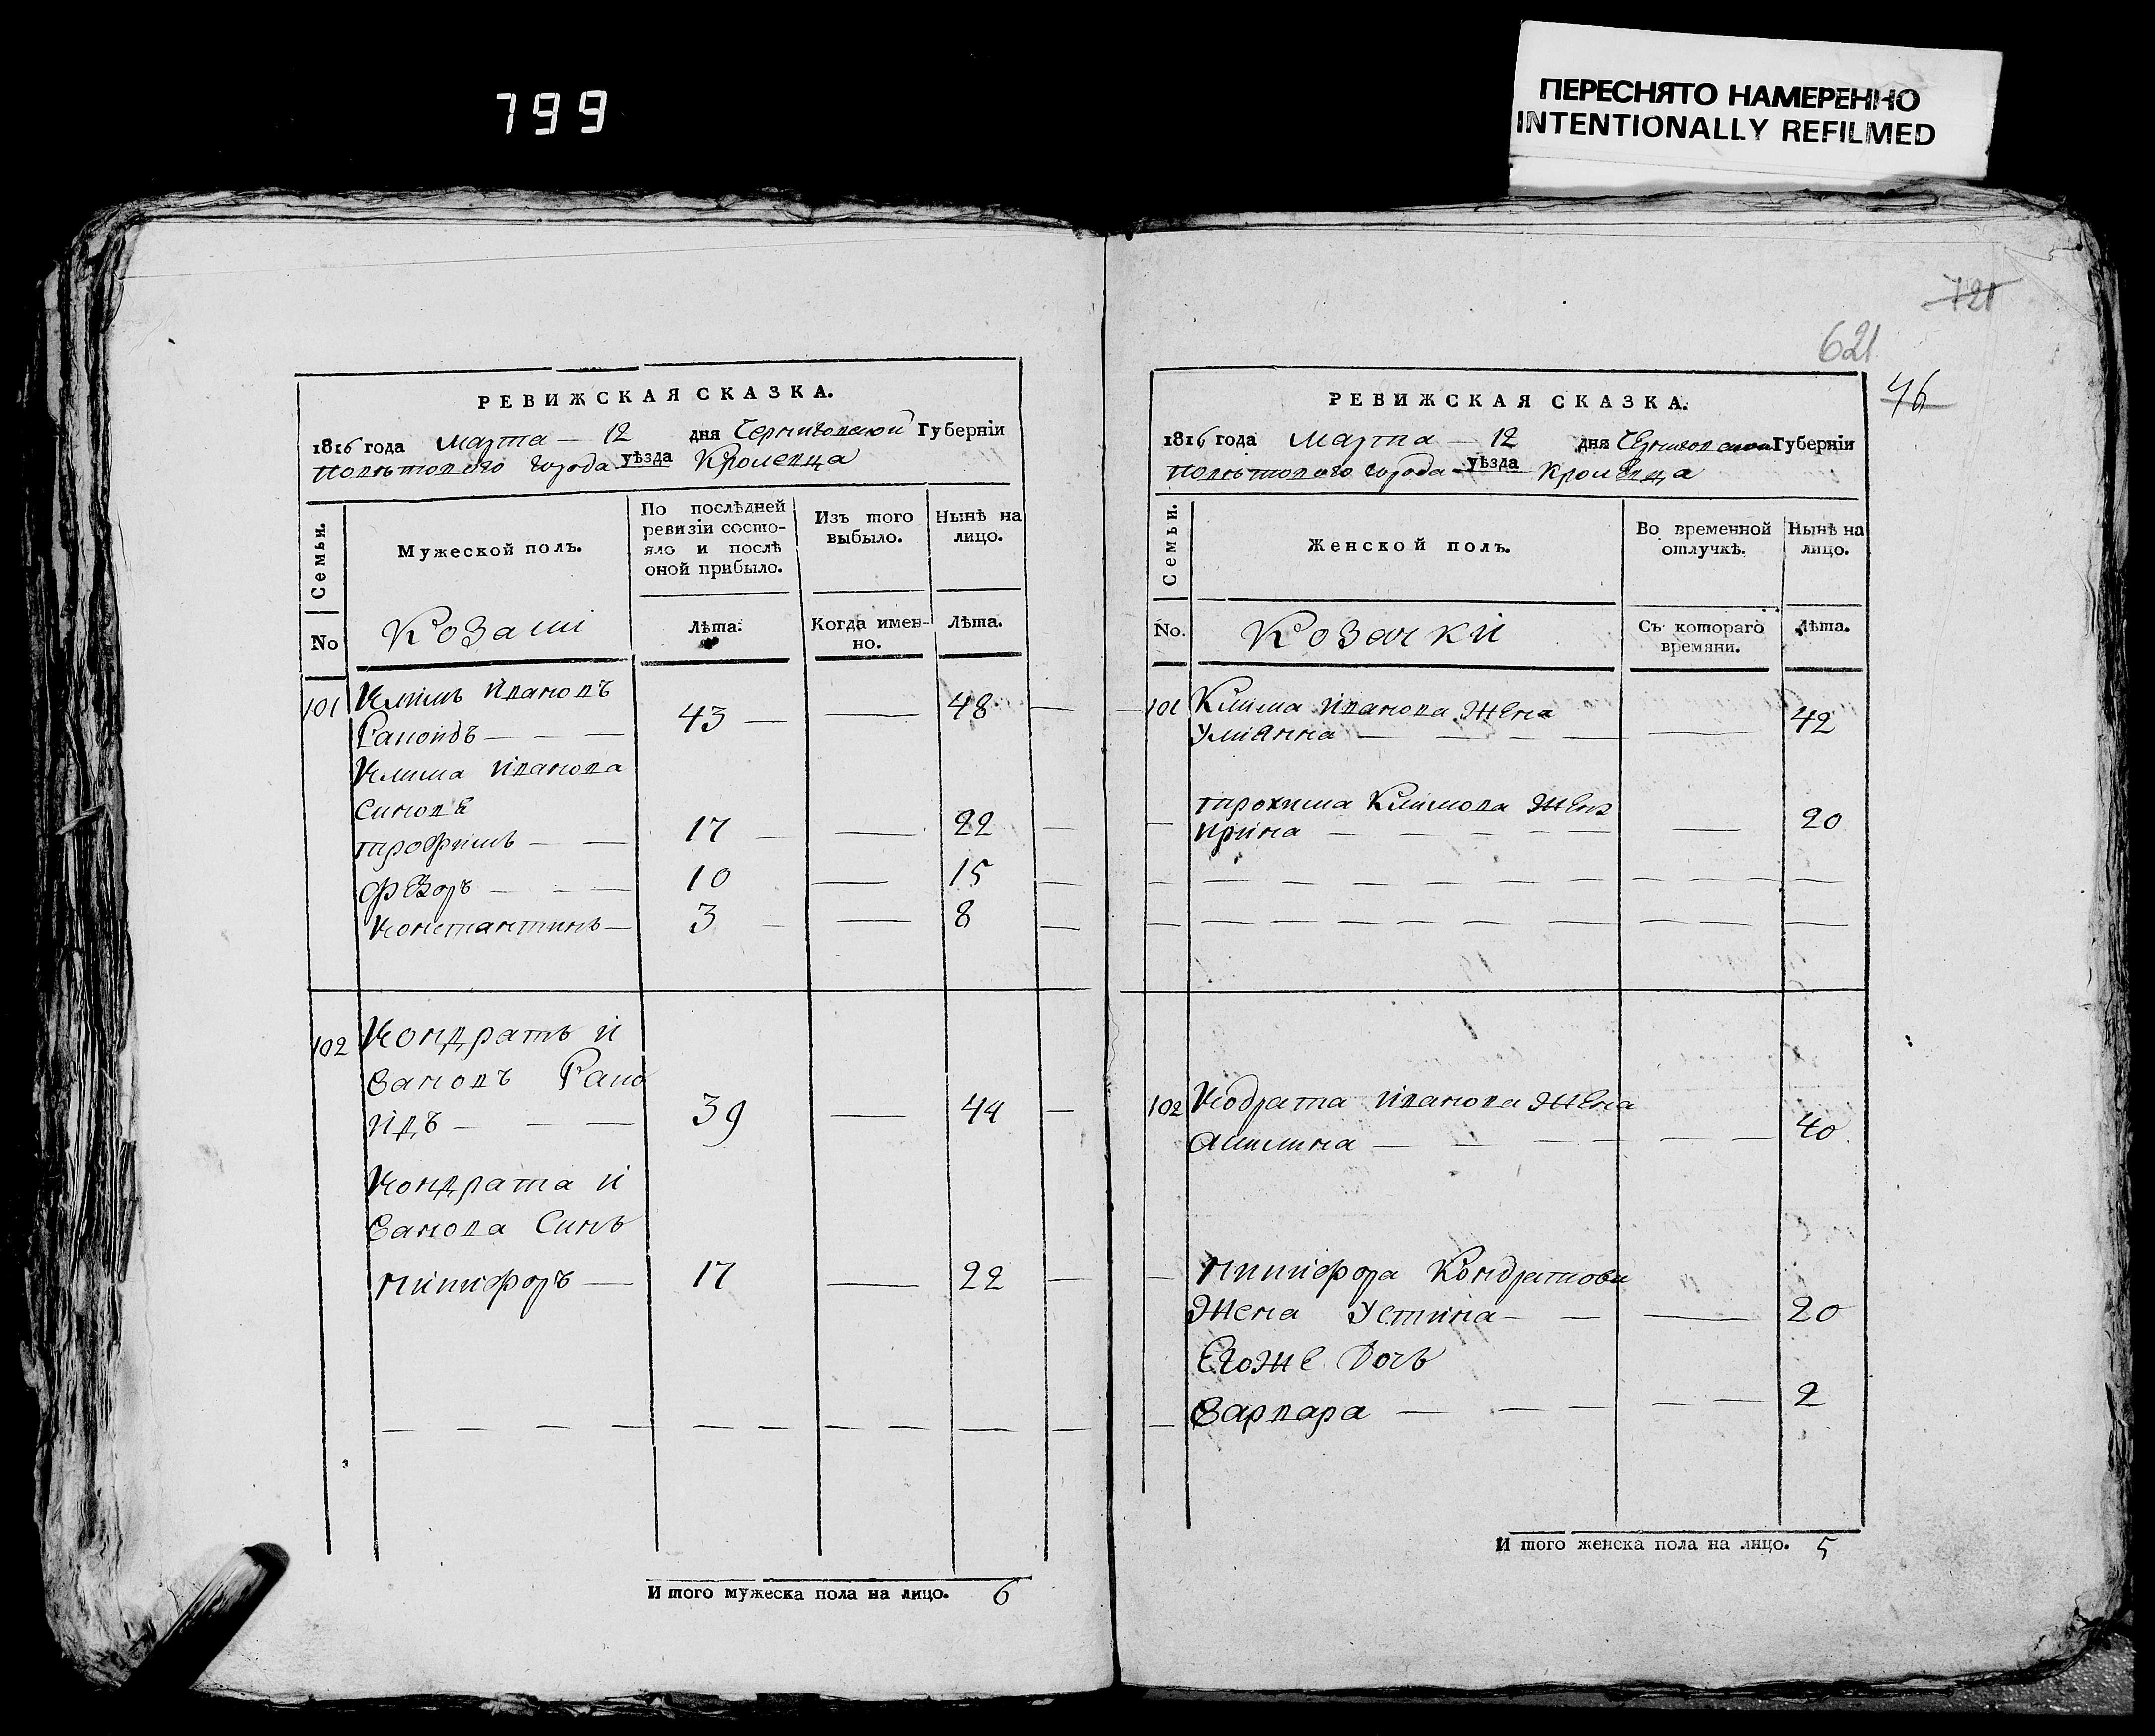 799
ПЕРЕСНЯТО НАМЕРЕННО
INTENTIONALLY REFILMED
721
621
46
РЕВИЖСКАЯ СКАЗКА.
1816 года Марта — 12 дня Черниговской Губерніи
Поветового города уѣзда Кролевца
Семьи.
Мужеской полъ.
По послѣдней ревизіи состо-
яло и послѣ
оной прибыло.
Изъ того
выбыло.
Нынѣ на
лицо.
No
Козаки
Лѣта.
Когда имен-
но.
Лѣта.
101 Климъ Ивановъ
43 — — 48
Клима Иванова
Синове
трофимъ — — 17 — — 22
Федоръ — — — 10 — 15
Константинъ — 3 — — 8
102 Кондратъ И
вановъ Рапо
идъ — — — 39 — 44
Кондрата И
ванова Синъ
Никифоръ — 17 — 22
И того мужеска пола на лицо. 6
РЕВИЖСКАЯ СКАЗКА.
1816 года Марта — 12 дня Черниговской Губерніи
Поветового города уѣзда Кролевца
Семьи.
Женской полъ.
Во временной
отлучкѣ.
Нынѣ на
лицо.
No.
Козачки
Съ котораго
времяни.
Лѣта.
101 Клима Иванова Жена
Улиянна — — — — — 42
трохима Климова Жена
Ирина — — — — — — 20
102 Кодрата Иванова Жена
Акилина — — — — — — 40
Никифора Кондратова
Жена Устина — — — 20
Егоже Дочь
Варвара — — — — — 2
И того женска пола на лицо. 5